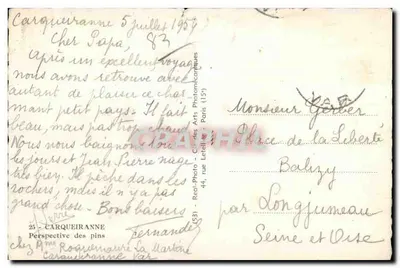 Carqueiranne 5 juillet 1959
83
Cher Papa,
Après un excellent voyage
nous avons retrouvé avec
autant de plaisir ce char
mant petit pays. Il fait
beau, mais pas trop chaud
Nous nous baignons tous
les jours et Jean Pierre nage
très bien. Il pêche dans les
rochers, mais il n'y a pas
grand chose - Bons baisers
Fernande
Pierre
25 - CARQUEIRANNE
Perspective des pins
chez Mme Roquemaure La
Carqueiranne Var
Real-Photo - des Arts Photomécaniques
44, rue Letellier, Paris (15e)
Monsieur Gerber
Place de la Liberté
par Longjumeau
Seine et Oise